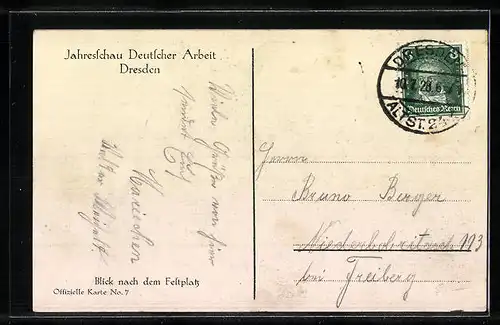 Jahresschau Deutscher Arbeit
Dresden
Viele Grüße von hier
sendet Euch
Mariechen
Blick nach dem Festplatz
Offizielle Karte No. 7
DRESDEN
10.7.28
ALTST. 24
Deutsches Reich
Herrn
Bruno Berger
Niederbobritzsch 113
bei Freiberg